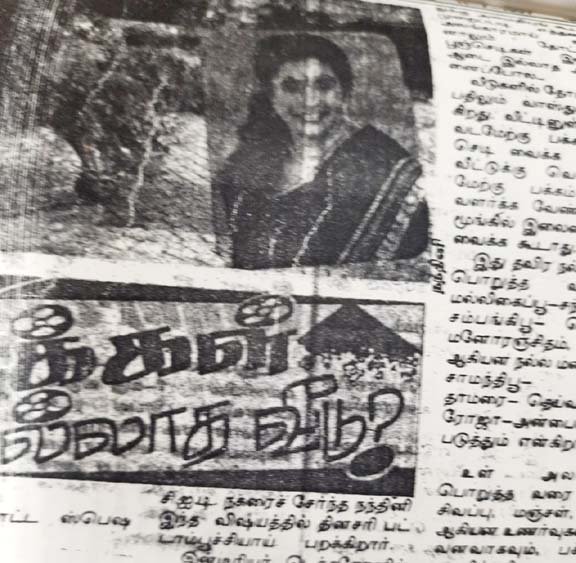 நந்தினி
க்கள்
ல்லாத வீடு?
சி.ஐ.டி. நகரைச் சேர்ந்த நந்தினி
ாட்ட ஸ்பெஷ
இந்த விஷயத்தில் தினசரி பட்
டாம்பூச்சியாய் பறக்கிறார்.
பூஞ்செடிகள்
ஆடை இல்லாத
வீடுகளில் தோ
பதிலும் வாஸ்து
கிறது. வீட்டினு
வடமேற்கு பக்
செடி வைக்க
வீட்டுக்கு வெ
மேற்கு பக்கம்
வளர்க்க வேண
மூங்கில் இலை
வைக்க கூடாது
இது தவிர நல்
பொறுத்த வ
மல்லிகைப்பூ-சந்
சம்பங்கிபூ-
மனோரஞ்சிதம்,
ஆகியன நல்ல ம
சாமந்திபூ-
தாமரை- தெய்வ
ரோஜா-அன்பை
படுத்தும் என்கிற
உள் அல
பொறுத்த வரை
சிவப்பு, மஞ்சள்,
ஆகியன உணர்வுக
வனவாகவும், பச